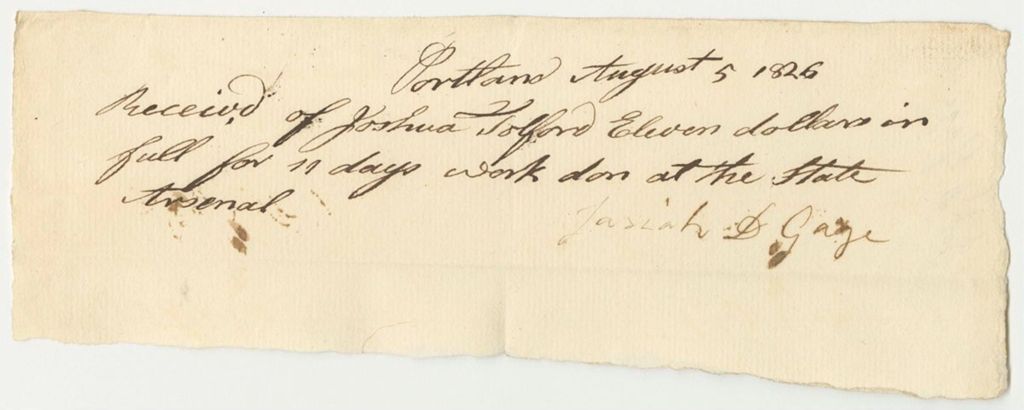 Portland August 5 1826
Receivd of Joshua Tolford Eleven dollars in
full for 11 days work don at the State
Arsenal
Josiah D Gage